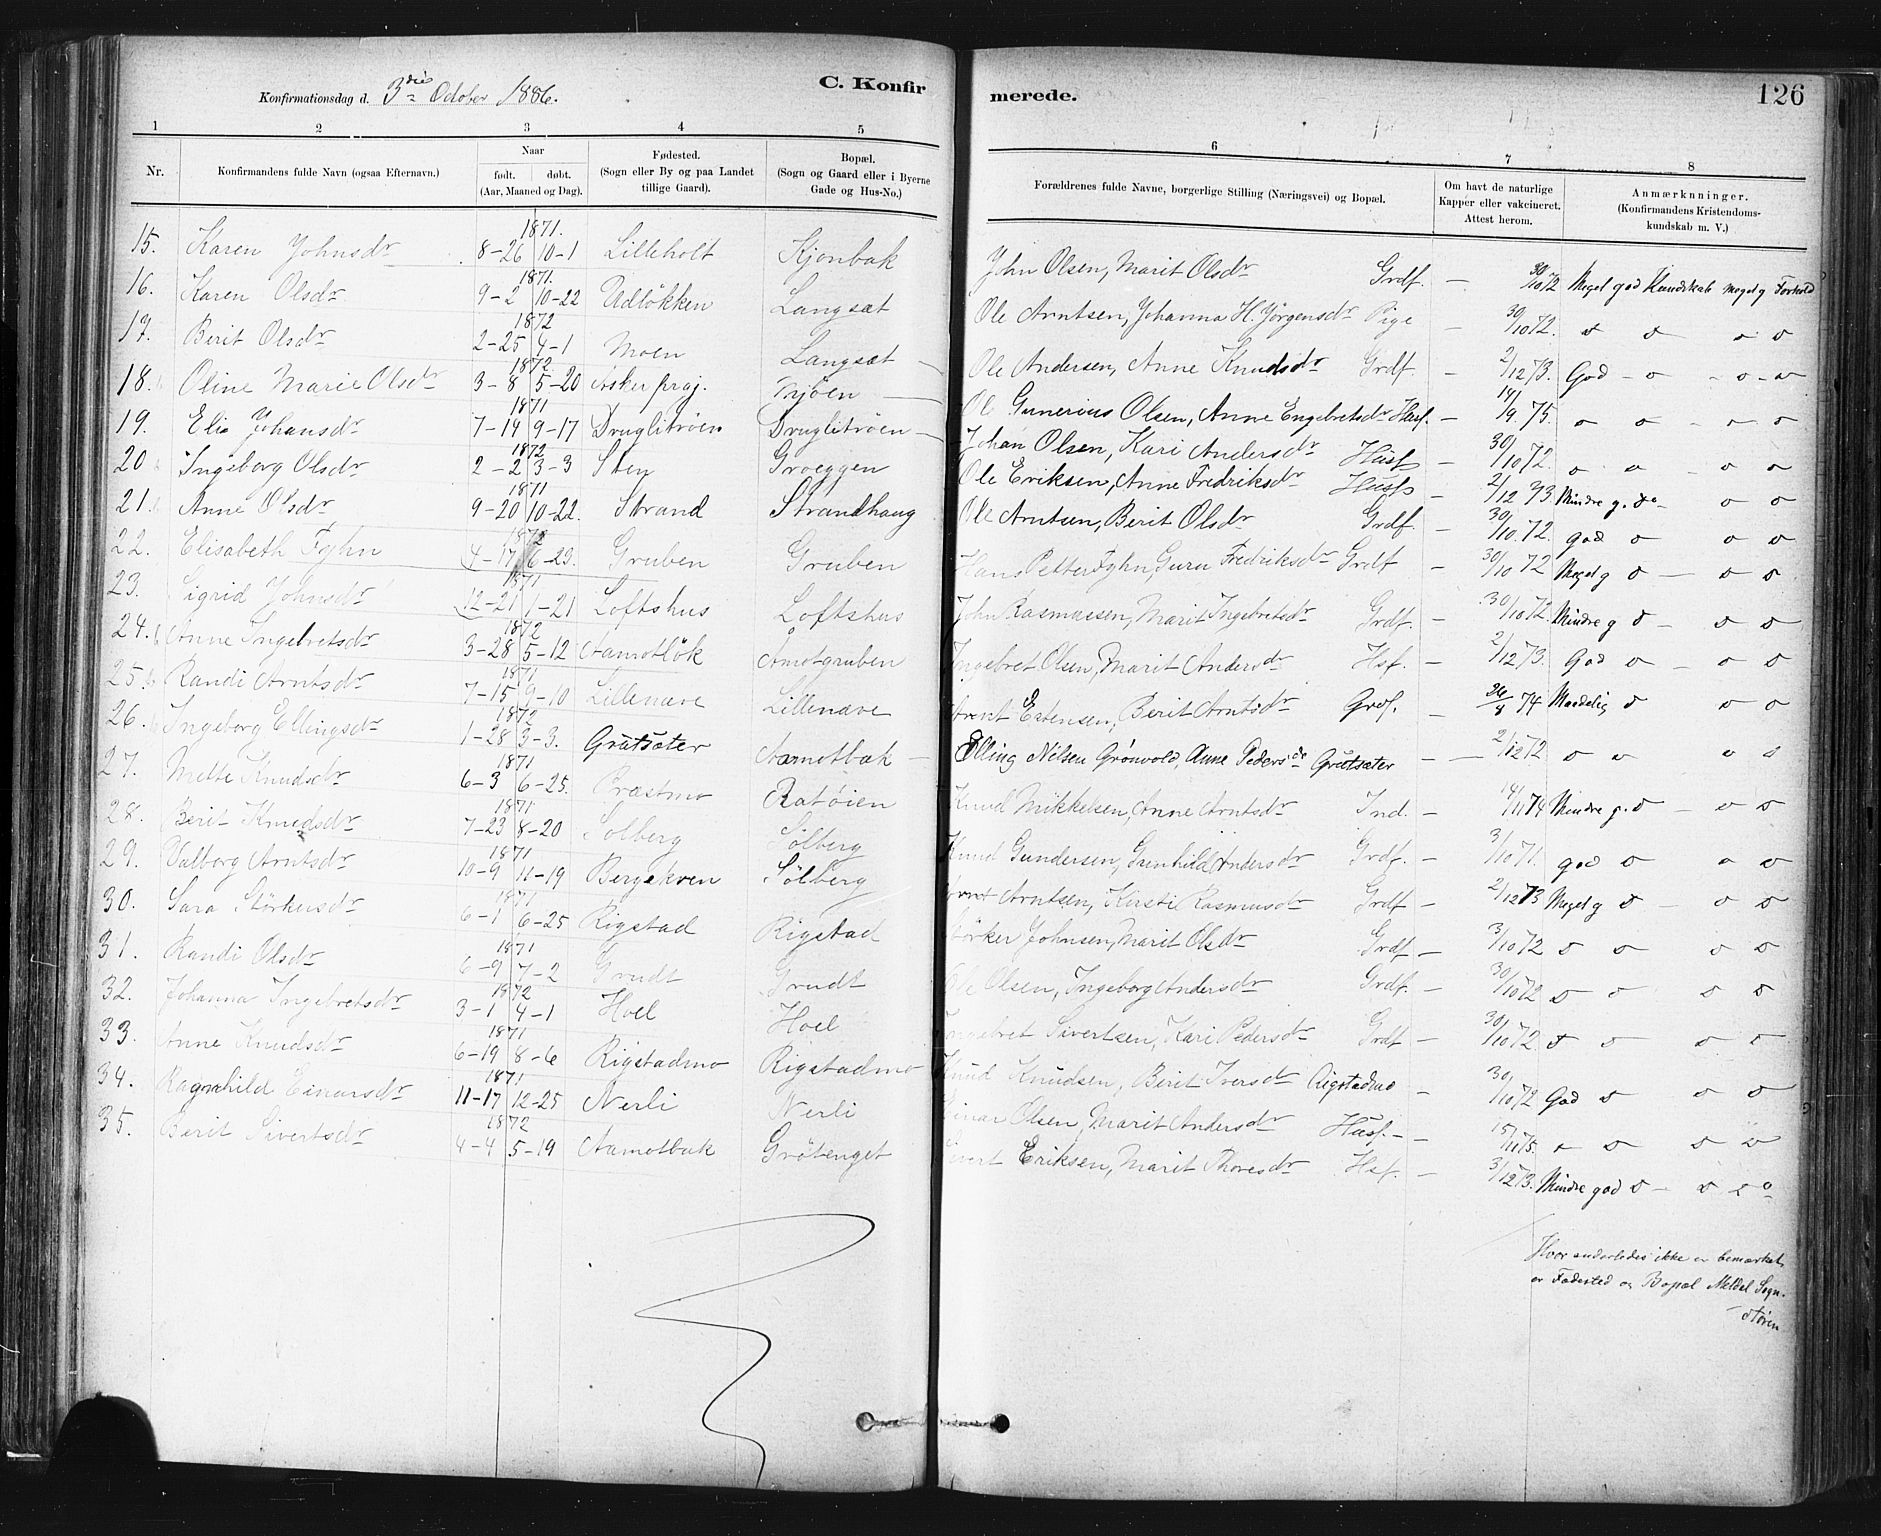 Konfirmationsdag d. 3die October 1886. C. Konfirmerede. 126
1 2 3 4 5 6 7 8
Nr. Konfirmandens fulde Navn (ogsaa Efternavn). Naar født. døbt. (Aar, Maaned og Dag). Fødested. (Sogn eller By og paa Landet tillige Gaard). Bopæl. (Sogn og Gaard eller i Byerne Gade og Hus-No.) Forældrenes fulde Navne, borgerlige Stilling (Næringsvei) og Bopæl. Om havt de naturlige Kopper eller vakcineret. Attest herom. Anmærkninger. (Konfirmandens Kristendomskundskab m. V.)
15. Karen Johnsdr 1871. 8-26 10-1 Lilleholt Kjønbak John Olsen, Marit Olsdr Grdf. — 30/10 72 Meget god Kundskab meget g Forhold
16. Karen Olsdr 1871. 9-2 10-22 Udløkken Langsæt Ole Arntsen, Johanna H. Jørgensdr Pige — 30/10 72. o o o o
17. Berit Olsdr 1872 2-25 4-1 Moen Langsæt — Ole Andersen, Anne Knudsdr Grdf. — 2/12 73. God - o - o - o
18. Oline Marie Olsdr 1872 3-8 5-20 Asker prgj. Mjøen — Ol Gunerius Olsen, Anne Engebretsdr Husf. — 14/9 75. o o - o o
19. Eli Johansdr 1871 7-14 9-17 Druglitrøen Druglitrøen — Johan Olsen, Kari Andersdr Husf — 30/10 72. o o - o o
20 Ingeborg Olsdr 1872 2-2 3-3 Sten Groeggen Ole Eriksen, Anne Fredriksdr Husf — 2/12 73. Mindre g. do - o o
21. Anne Olsdr 1871 9-20 10-22. Strand Strandhaug Ole Arntsen, Berit Olsdr Grdf. — 30/10. 72. god o o o
22. Elisabeth Fyhn 1872 4-17 6-23. Gruben Gruben Hans Petter Fyhn, Guru Fredriksdr Grdf — 30/10 72 Meget g o — o o
23. Sigrid Johnsdr 1871 12-21 1-21 Loftshus Loftshus John Rasmussen, Marit Ingebretsdr Grdf. — 30/10 72. Mindre g o - o o
24. Anne Ingebretsdr 1872 3-28 5-12 Aamotløk Åmotgruben Ingebret Olsen, Marit Andersdr Hsf. — 2/12 73. God o — o o
25. Randi Arntsdr 1871 7-15 9-10 Lillenæve Lillenæve Arnt Estensen, Berit Arntsdr Grdf. — 26/8 74 Maadelig o o o
26. Ingeborg Ellingsdr 1872 1-28 3-3. Grutsæter Aamotbak — Elling Nilsen Grønvold, Anne Pedersdr Grutsæter — 2/12 72 o o o o
27. Mette Knudsdr 1871 6-3 6-25. Præstmo Ratøien Knud Mikkelsen, Anne Arntsdr Ind. — 14/11 74 Mindre g. o — o o
28. Berit Knudsdr 1871 7-23 8-20 Solberg Sølberg Knud Gundersen, Gunhild Andersdr Grdf. — 3/10 71. god o o o
29. Valborg Arntsdr 1871 10-9 11-19 Bergskven Sølberg Arnt Arntsen, Kirsti Rasmusdr Grdf — 2/12 73 Meget g o - o o
30. Sara Størkersdr 1871 6-1 6-25 Rigstad Rigstad Størker Johnsen, Marit Olsdr Grdf — 3/10 72 o o o o
31. Randi Olsdr 1871 6-9 7-2 Grudt Grudt Ole Olsen, Ingeborg Andersdr Grdf. — 30/10 72 o o o o
32. Johanna Ingebretsdr 1872 3-1 4-1 Hoel Hoel Ingebret Sivertsen, Kari Pedersdr Grdf — 30/10 72 o o o o
33. Anne Knudsdr 1871 6-19 8-6 Rigstadmo Rigstadmo Knud Knudsen, Berit Iversdr Rigstadmo — 30/10 72 God o o o
34. Ragnhild Einarsdr 1871 11-17 12-25 Nerli Nerli Einar Olsen, Marit Andersdr Husf. — 15/11 75. o o o o
35. Berit Sivertsdr 1872 4-4 5-19 Aamotbak Grøtenget Sivert Eriksen, Marit Thoresdr Hsf. — 3/12 73. Mindre god o — o o
Hvor anderledes ikke er bemærket,
er Fødested og Bopæl Meldal Sogn.
Støren